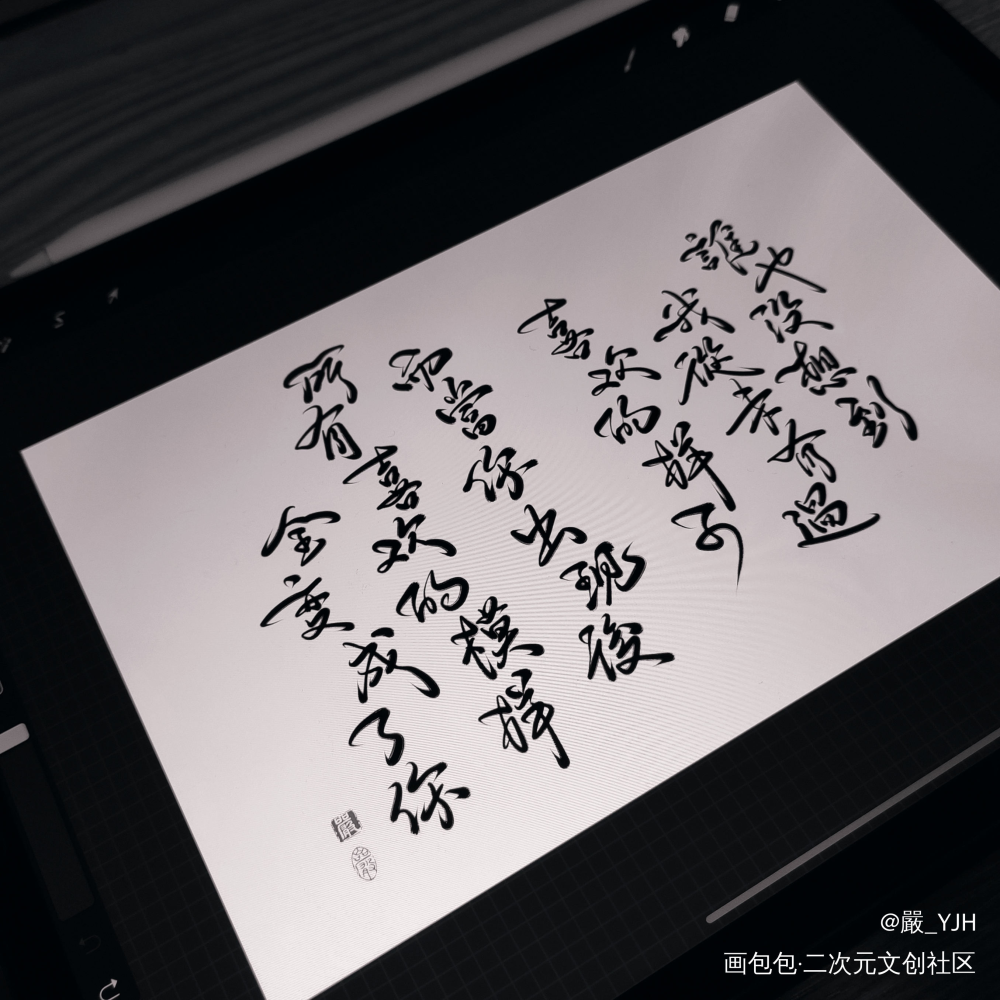 誰也沒想到
我從未有過
喜欢的样子
而當你出現後
所有喜欢的模样
全变成了你
嚴
@嚴_YJH
画包包·二次元文创社区